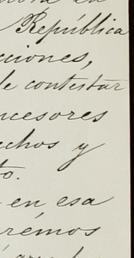 en
República
ciones,
le contestar
ncesores
echos y
to.
en esa
remos